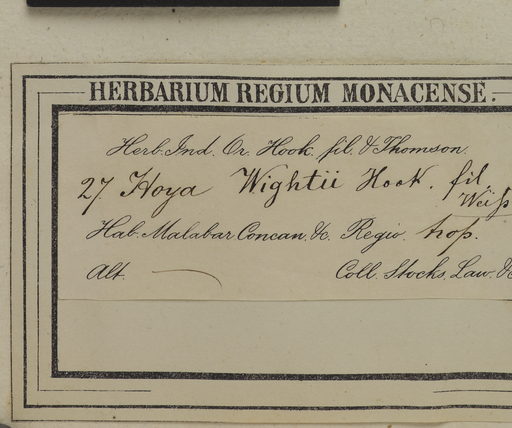 HERBARIUM REGIUM MONACENSE.
Herb. Ind. Or. Hook. fil. & Thomson.
27. Hoya Wightii Hook. fil.
Weiß
Hab. Malabar Concan, &c. Regio. trop.
Alt. Coll. Stocks, Law, &c